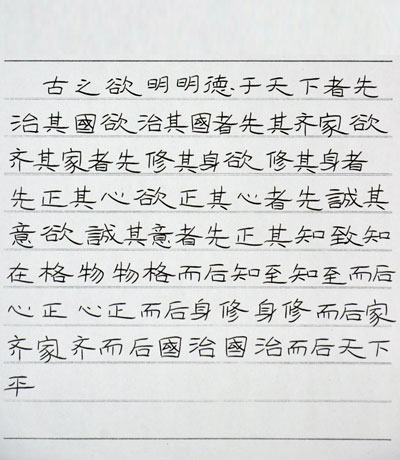 古之欲明明德于天下者先
治其國欲治其國者先其齐家欲
齐其家者先修其身欲修其身者
先正其心欲正其心者先誠其
意欲誠其意者先正其知致知
在格物物格而后知至知至而后
心正心正而后身修身修而后家
齐家齐而后國治國治而后天下
平